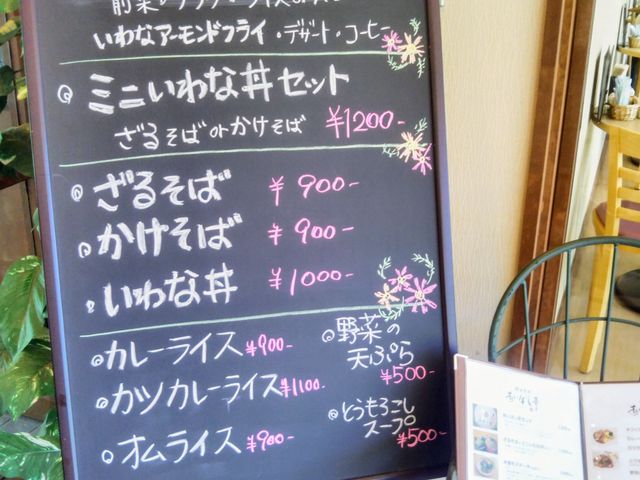 いわなアーモンドフライ・デザート・コーヒー
◎ミニいわな丼セット
ざるそばorかけそば ¥1200-
◎ざるそば ¥900-
◎かけそば ¥900-
◎いわな丼 ¥1000-
◎カレーライス ¥900-
◎カツカレーライス ¥1100-
◎オムライス ¥900-
◎野菜の
天ぷら
¥500-
◎とうもろこし
スープ
¥500-